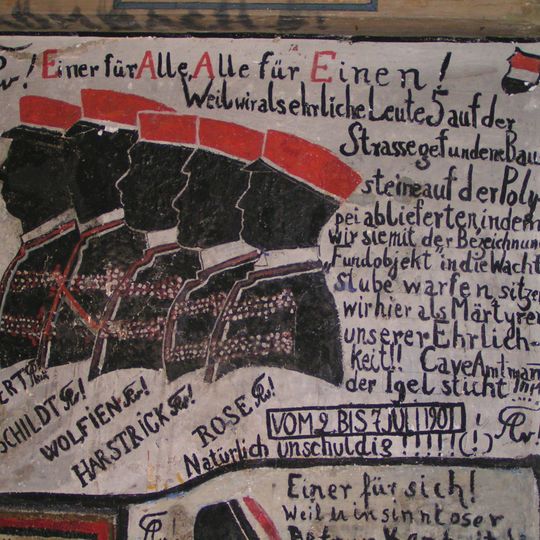 ! Einer für Alle, Alle für Einen!
Weil wir als ehrliche Leute 5 auf der
Strasse gefundene Bau
steine auf der Poly-
pei ablieferten, indem
wir sie mit der Bezeichnung
„Fundobjekt" in die Wacht
stube warfen, sitzen
wir hier als Märtyrer
unserer Ehrlich-
keit!! Cave Amtmann
der Igel sticht
SCHILDT !
WOLFIEN !
HARSTRICK !
ROSE !
VOM 2. BIS 7. JULI 1901 !
Natürlich unschuldig !!!!!(!)
Einer für sich!
Weil in sinnloser